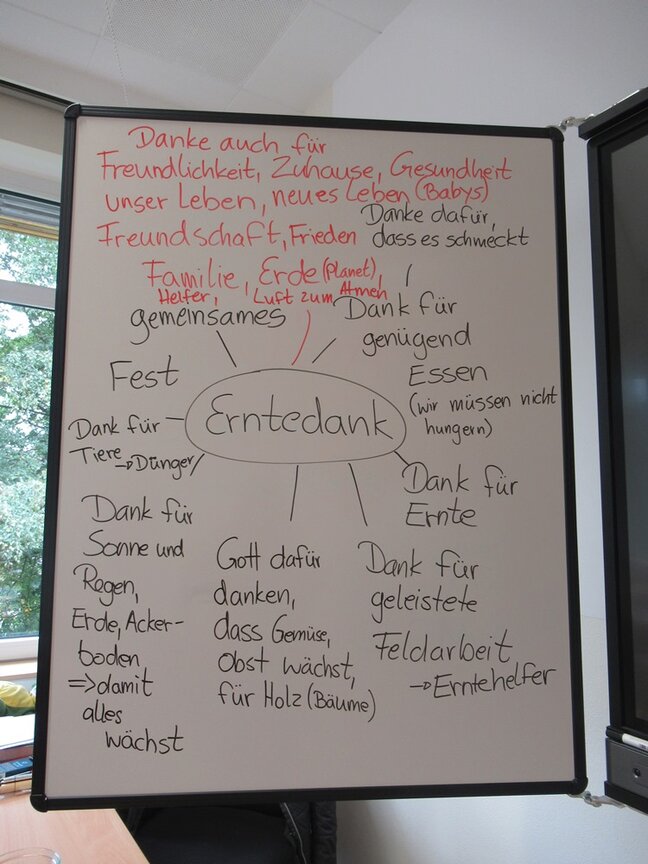 Danke auch für
Freundlichkeit, Zuhause, Gesundheit
unser Leben, neues Leben (Babys)
Freundschaft, Frieden
Familie, Erde (Planet),
Helfer, Luft zum Atmen
Danke dafür,
dass es schmeckt
gemeinsames
Fest
Dank für
genügend
Essen
(wir müssen nicht
hungern)
Erntedank
Dank für
Tiere → Dünger
Dank für
Ernte
Dank für
Sonne und
Regen,
Erde, Acker-
boden
=> damit
alles
wächst
Gott dafür
danken,
dass Gemüse,
Obst wächst,
für Holz (Bäume)
Dank für
geleistete
Feldarbeit
→ Erntehelfer